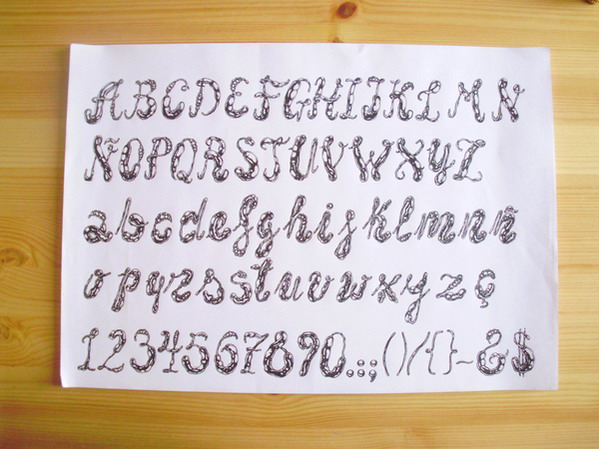 ABCDEFGHIJKLMN
ÑOPQRSTUVWXYZ
abcdefghijklmnñ
opqrsstuvwxyzç
1234567890.:;()/{}~&$